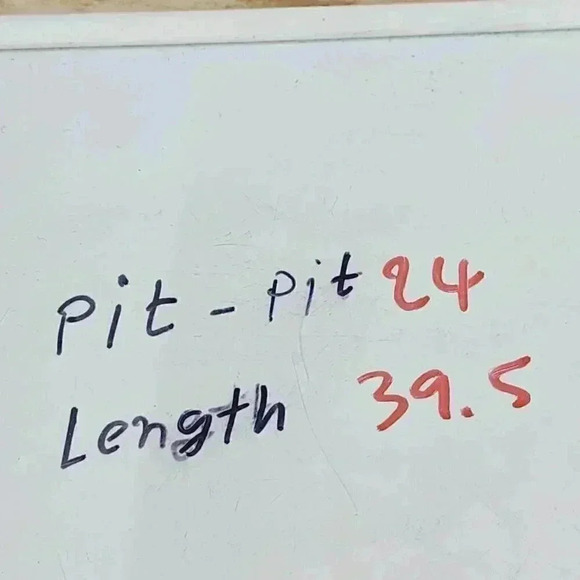 Pit - Pit 24
Length 39.5